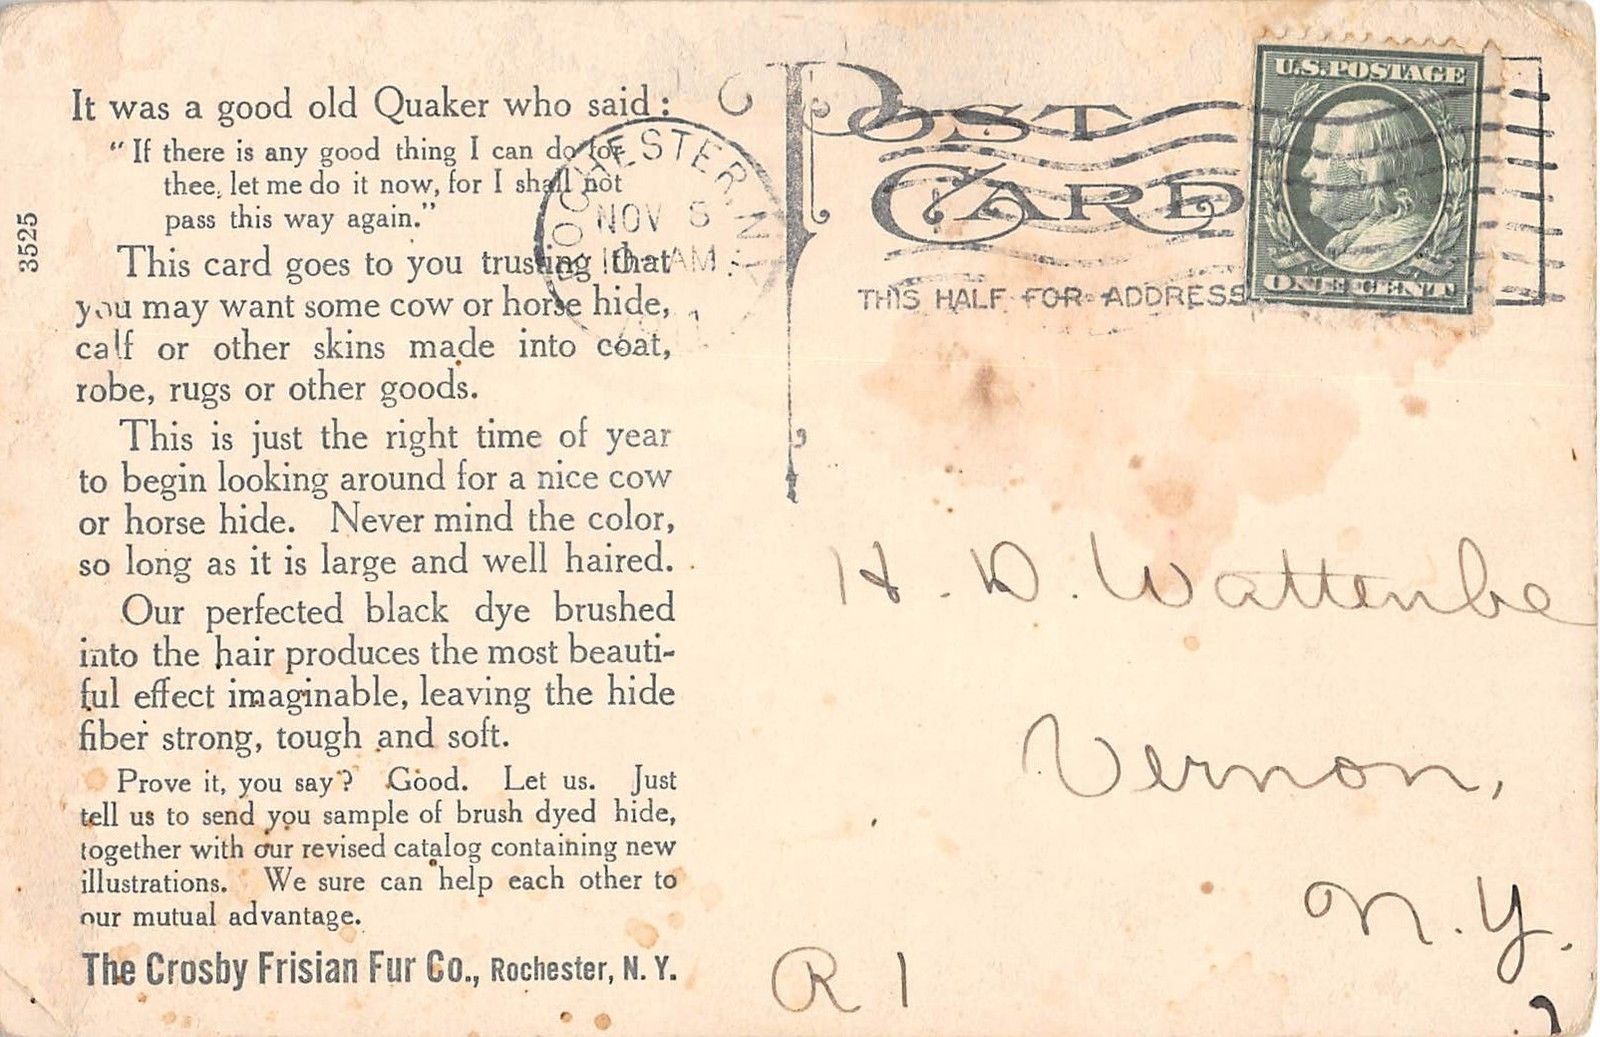 It was a good old Quaker who said:
"If there is any good thing I can do for
thee, let me do it now, for I shall not
pass this way again."
This card goes to you trusting that
you may want some cow or horse hide,
calf or other skins made into coat,
robe, rugs or other goods.
This is just the right time of year
to begin looking around for a nice cow
or horse hide. Never mind the color,
so long as it is large and well haired.
Our perfected black dye brushed
into the hair produces the most beauti-
ful effect imaginable, leaving the hide
fiber strong, tough and soft.
Prove it, you say? Good. Let us. Just
tell us to send you sample of brush dyed hide,
together with our revised catalog containing new
illustrations. We sure can help each other to
our mutual advantage.
The Crosby Frisian Fur Co., Rochester, N. Y.
3525
ROCHESTER, N.Y.
NOV 5
AM
POST
CARD
THIS HALF FOR ADDRESS
U.S. POSTAGE
ONE CENT
H. D. Wattenbe
Vernon,
N. Y.
R 1